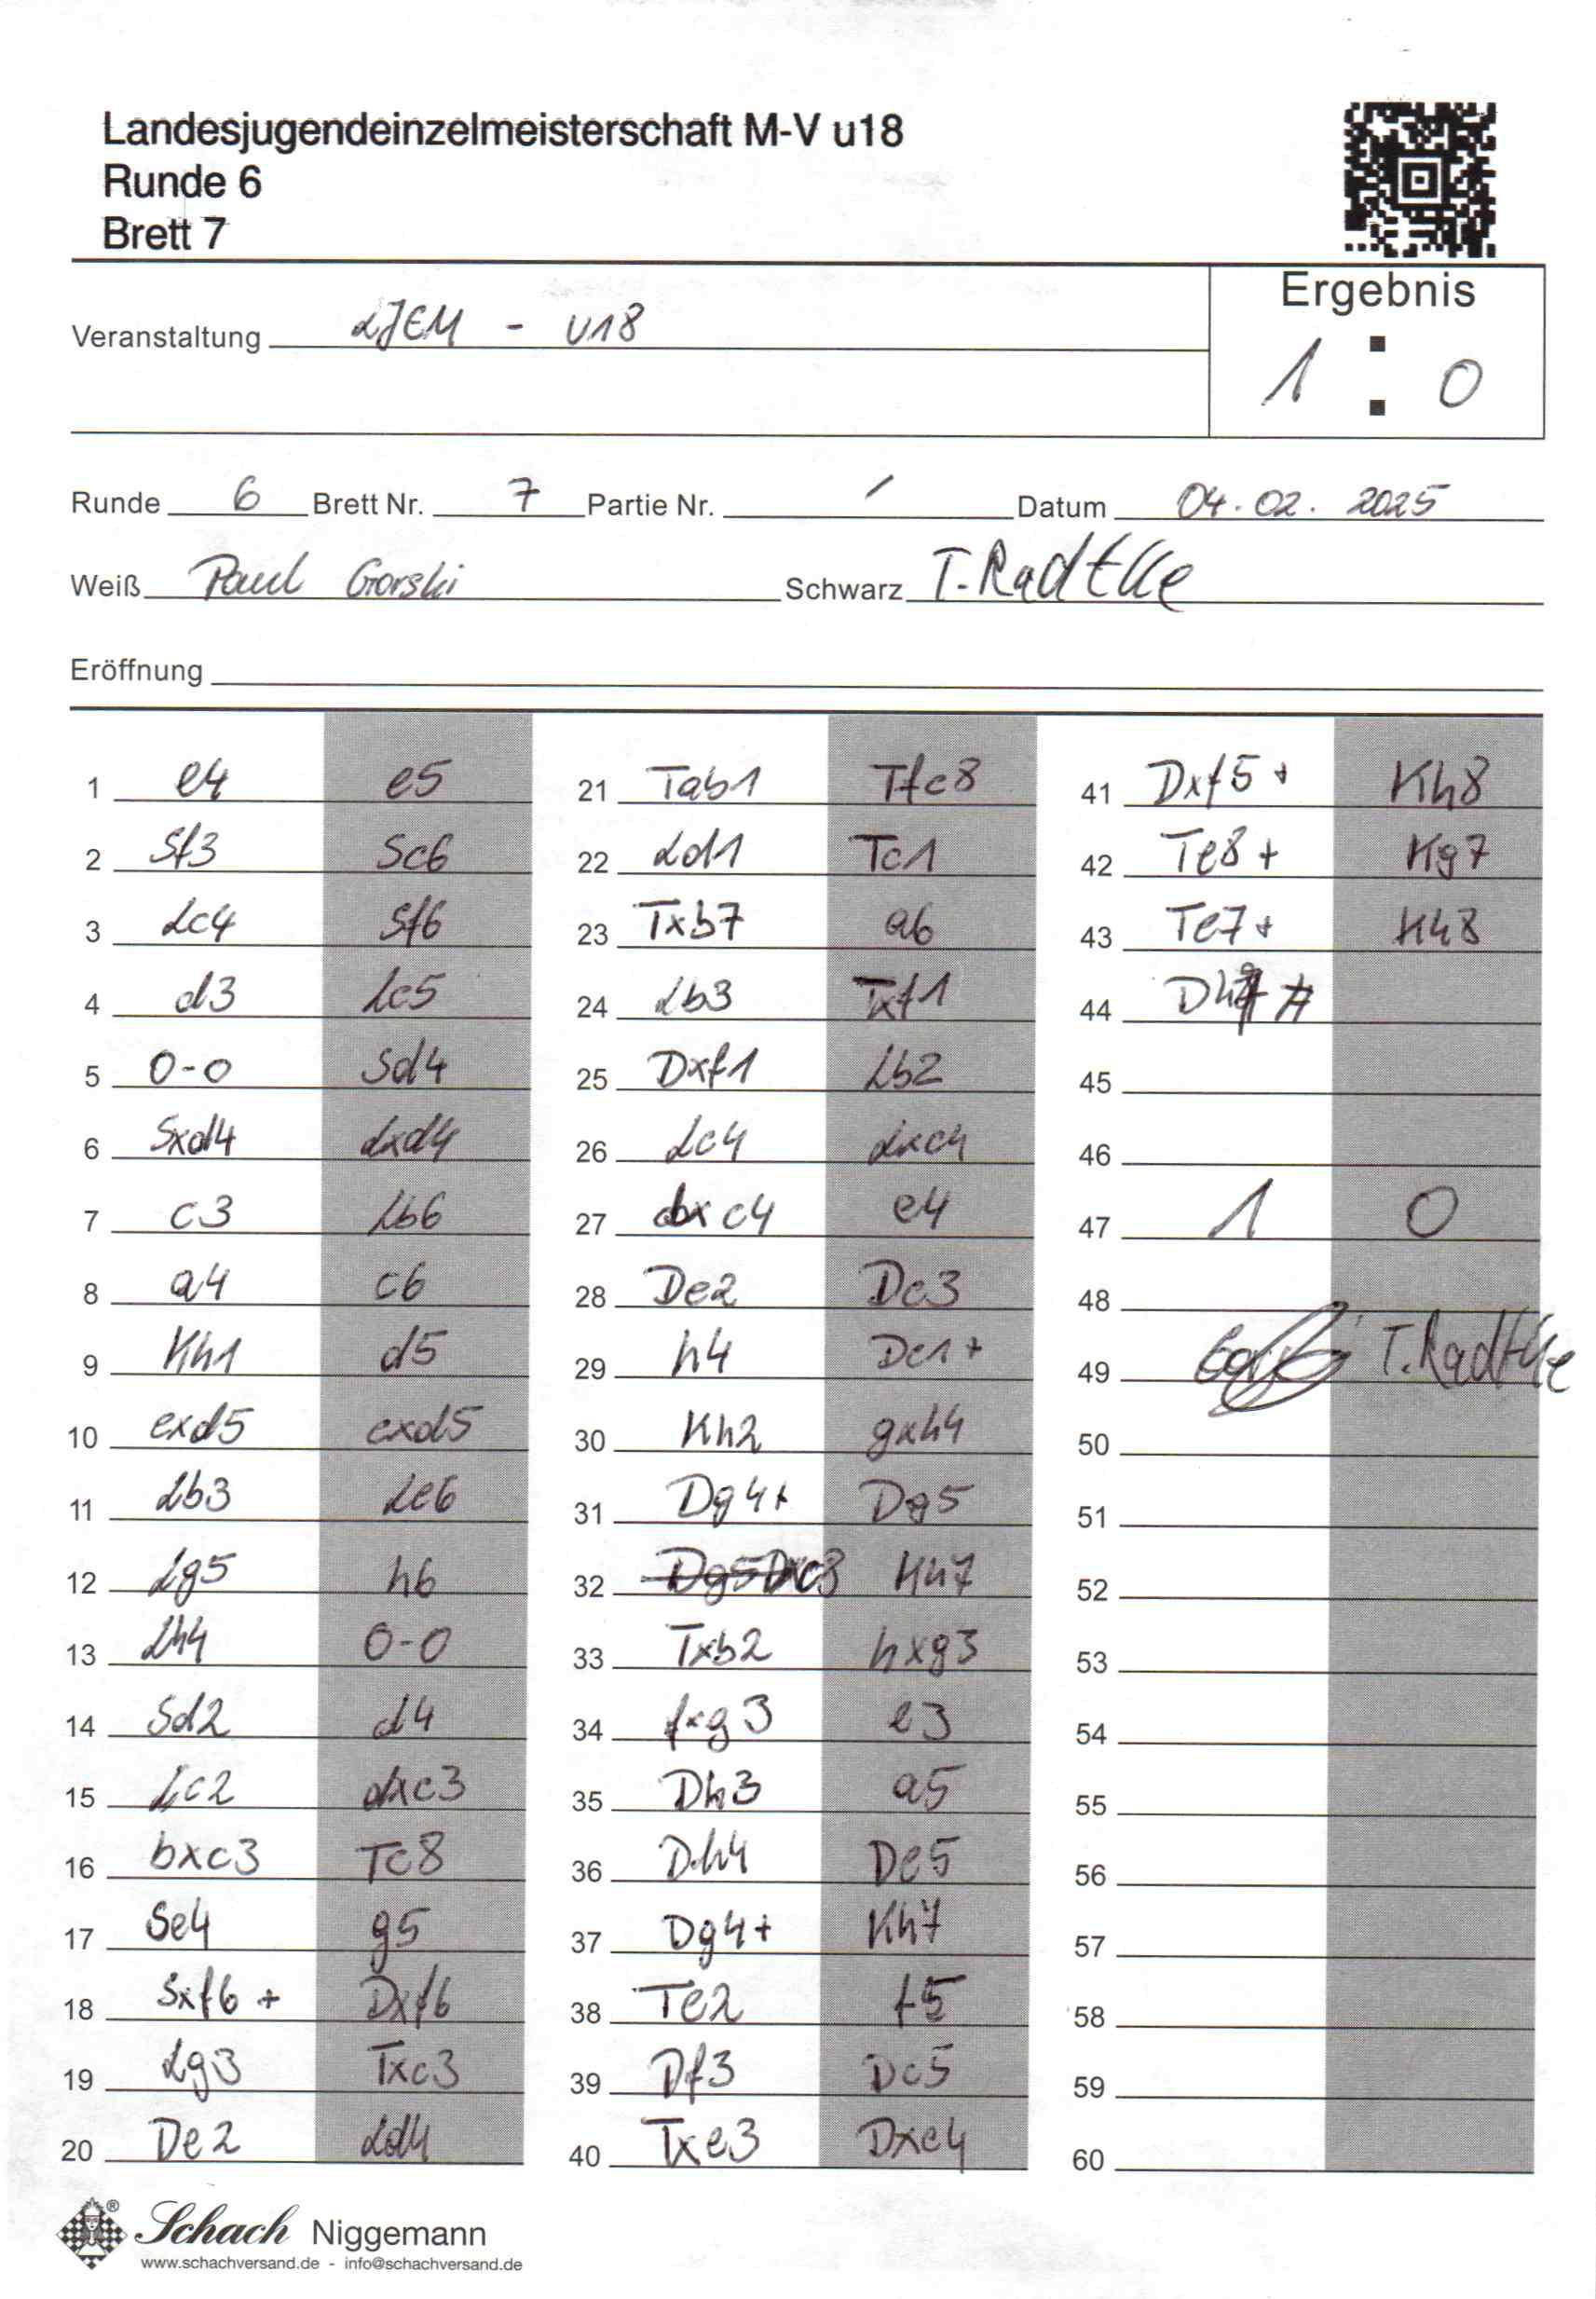 Landesjugendeinzelmeisterschaft M-V u18
Runde 6
Brett 7
Ergebnis
1 : 0
Veranstaltung LJEM - U18
Runde 6 Brett Nr. 7 Partie Nr. / Datum 04.02.2025
Weiß Paul Gorski Schwarz T. Radtke
Eröffnung
1 e4 e5
2 Sf3 Sc6
3 Lc4 Sf6
4 d3 Lc5
5 0-0 Sd4
6 Sxd4 Lxd4
7 c3 Lb6
8 a4 c6
9 Kh1 d5
10 exd5 cxd5
11 Lb3 Le6
12 Lg5 h6
13 Lh4 0-0
14 Sd2 d4
15 Lc2 dxc3
16 bxc3 Tc8
17 Se4 g5
18 Sxf6+ Dxf6
19 Lg3 Txc3
20 De2 Ld4
21 Tab1 Tfc8
22 Ld1 Tc1
23 Txb7 a6
24 Lb3 Txf1
25 Dxf1 Lb2
26 Lc4 Lxc4
27 dxc4 e4
28 De2 Dc3
29 h4 Dc1+
30 Kh2 gxh4
31 Dg4+ Dg5
32 Dxc8 Kh7
33 Txb2 hxg3
34 fxg3 e3
35 Dh3 a5
36 Dh4 De5
37 Dg4+ Kh7
38 Te2 f5
39 Df3 Dc5
40 Txe3 Dxc4
41 Dxf5+ Kh8
42 Te8+ Kg7
43 Te7+ Kh8
44 Dh7#
45
46
47 1 0
48
49 T. Radtke
50
51
52
53
54
55
56
57
58
59
60
Schach Niggemann
www.schachversand.de - info@schachversand.de